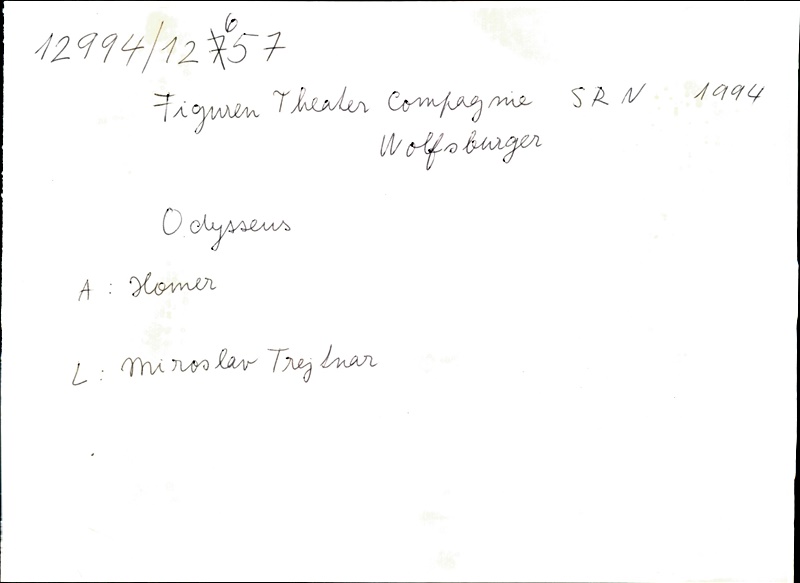 12994/12657
Figuren Theater Compagnie SRN 1994
Wolfsburger
Odysseus
A: Homer
L: Miroslav Trejtnar